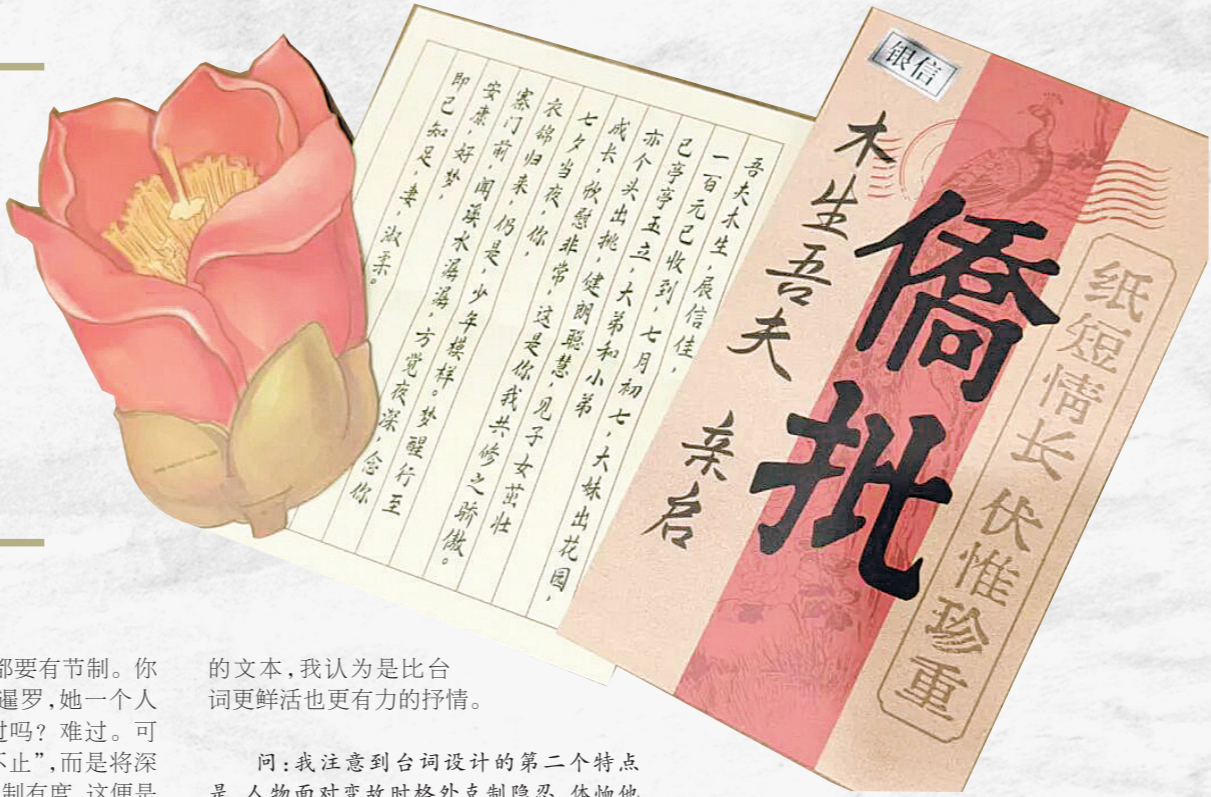 吾夫木生,展信佳,
一百元已收到,七月初七,大妹出花园,
已亭亭玉立,大弟和小弟
亦个头出挑,健朗聪慧,见子女茁壮
成长,欣慰非常,这是你我共修之骄傲。
七夕当夜,你
衣锦归来,仍是,少年模样。梦醒行至
寨门前,闻溪水潺潺,方觉夜深,念你
安康,好梦,
即已知足,妻,淑柔。
银信
木生吾夫 亲启
僑批
纸短情长 伏惟珍重
都要有节制。你
暹罗,她一个人
过吗?难过。可
不止”,而是将深
制有度,这便是
的文本,我认为是比台
词更鲜活也更有力的抒情。
问:我注意到台词设计的第二个特点
是,人物面对变故时格外克制隐忍、体恤他